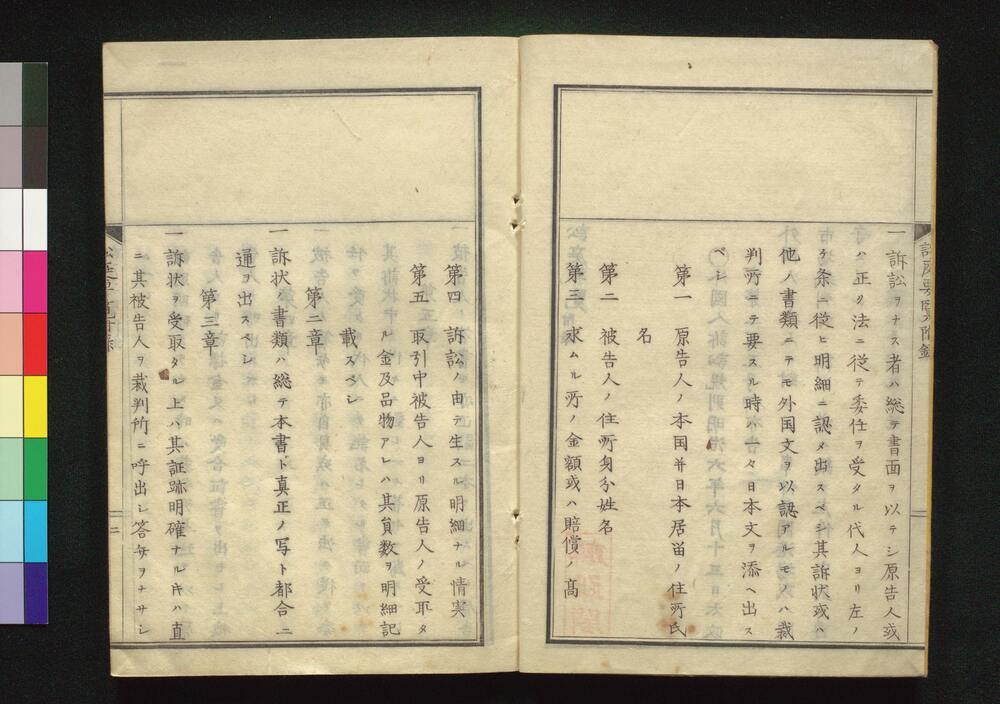 一 訴訟ヲナス者ハ総テ書面ヲ以テシ原告人或
ハ正ク法ニ従テ委任ヲ受タル代人ヨリ左ノ
ケ条ニ従ヒ明細ニ認メ出スベシ其訴状或ハ
他ノ書類ニテモ外国文ヲ以認アルモノハ裁
判所ニテ要スル時ハ一々日本文ヲ添ヘ出ス
ベシ
第一 原告人ノ本国并日本居留ノ住所氏
名
第二 被告人ノ住所身分姓名
第三 求ムル所ノ金額或ハ賠償ノ高
第四 訴訟ノ由テ生スル明細ナル情実
第五 取引中被告人ヨリ原告人ノ受取タ
ル金及品物アレハ其員数ヲ明細記
載スベシ
第二章
一 訴状ノ書類ハ総テ本書ト真正ノ写ト都合二
通ヲ出スベシ
第三章
一 訴状ヲ受取タル上ハ其証跡明確ナルキハ直
ニ其被告人ヲ裁判所ニ呼出シ答弁ヲナサシ
二